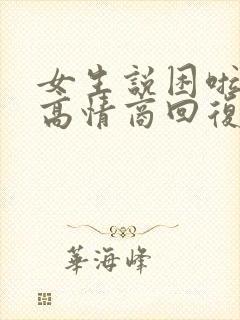 女生説困啦
高情商回復
華海峰